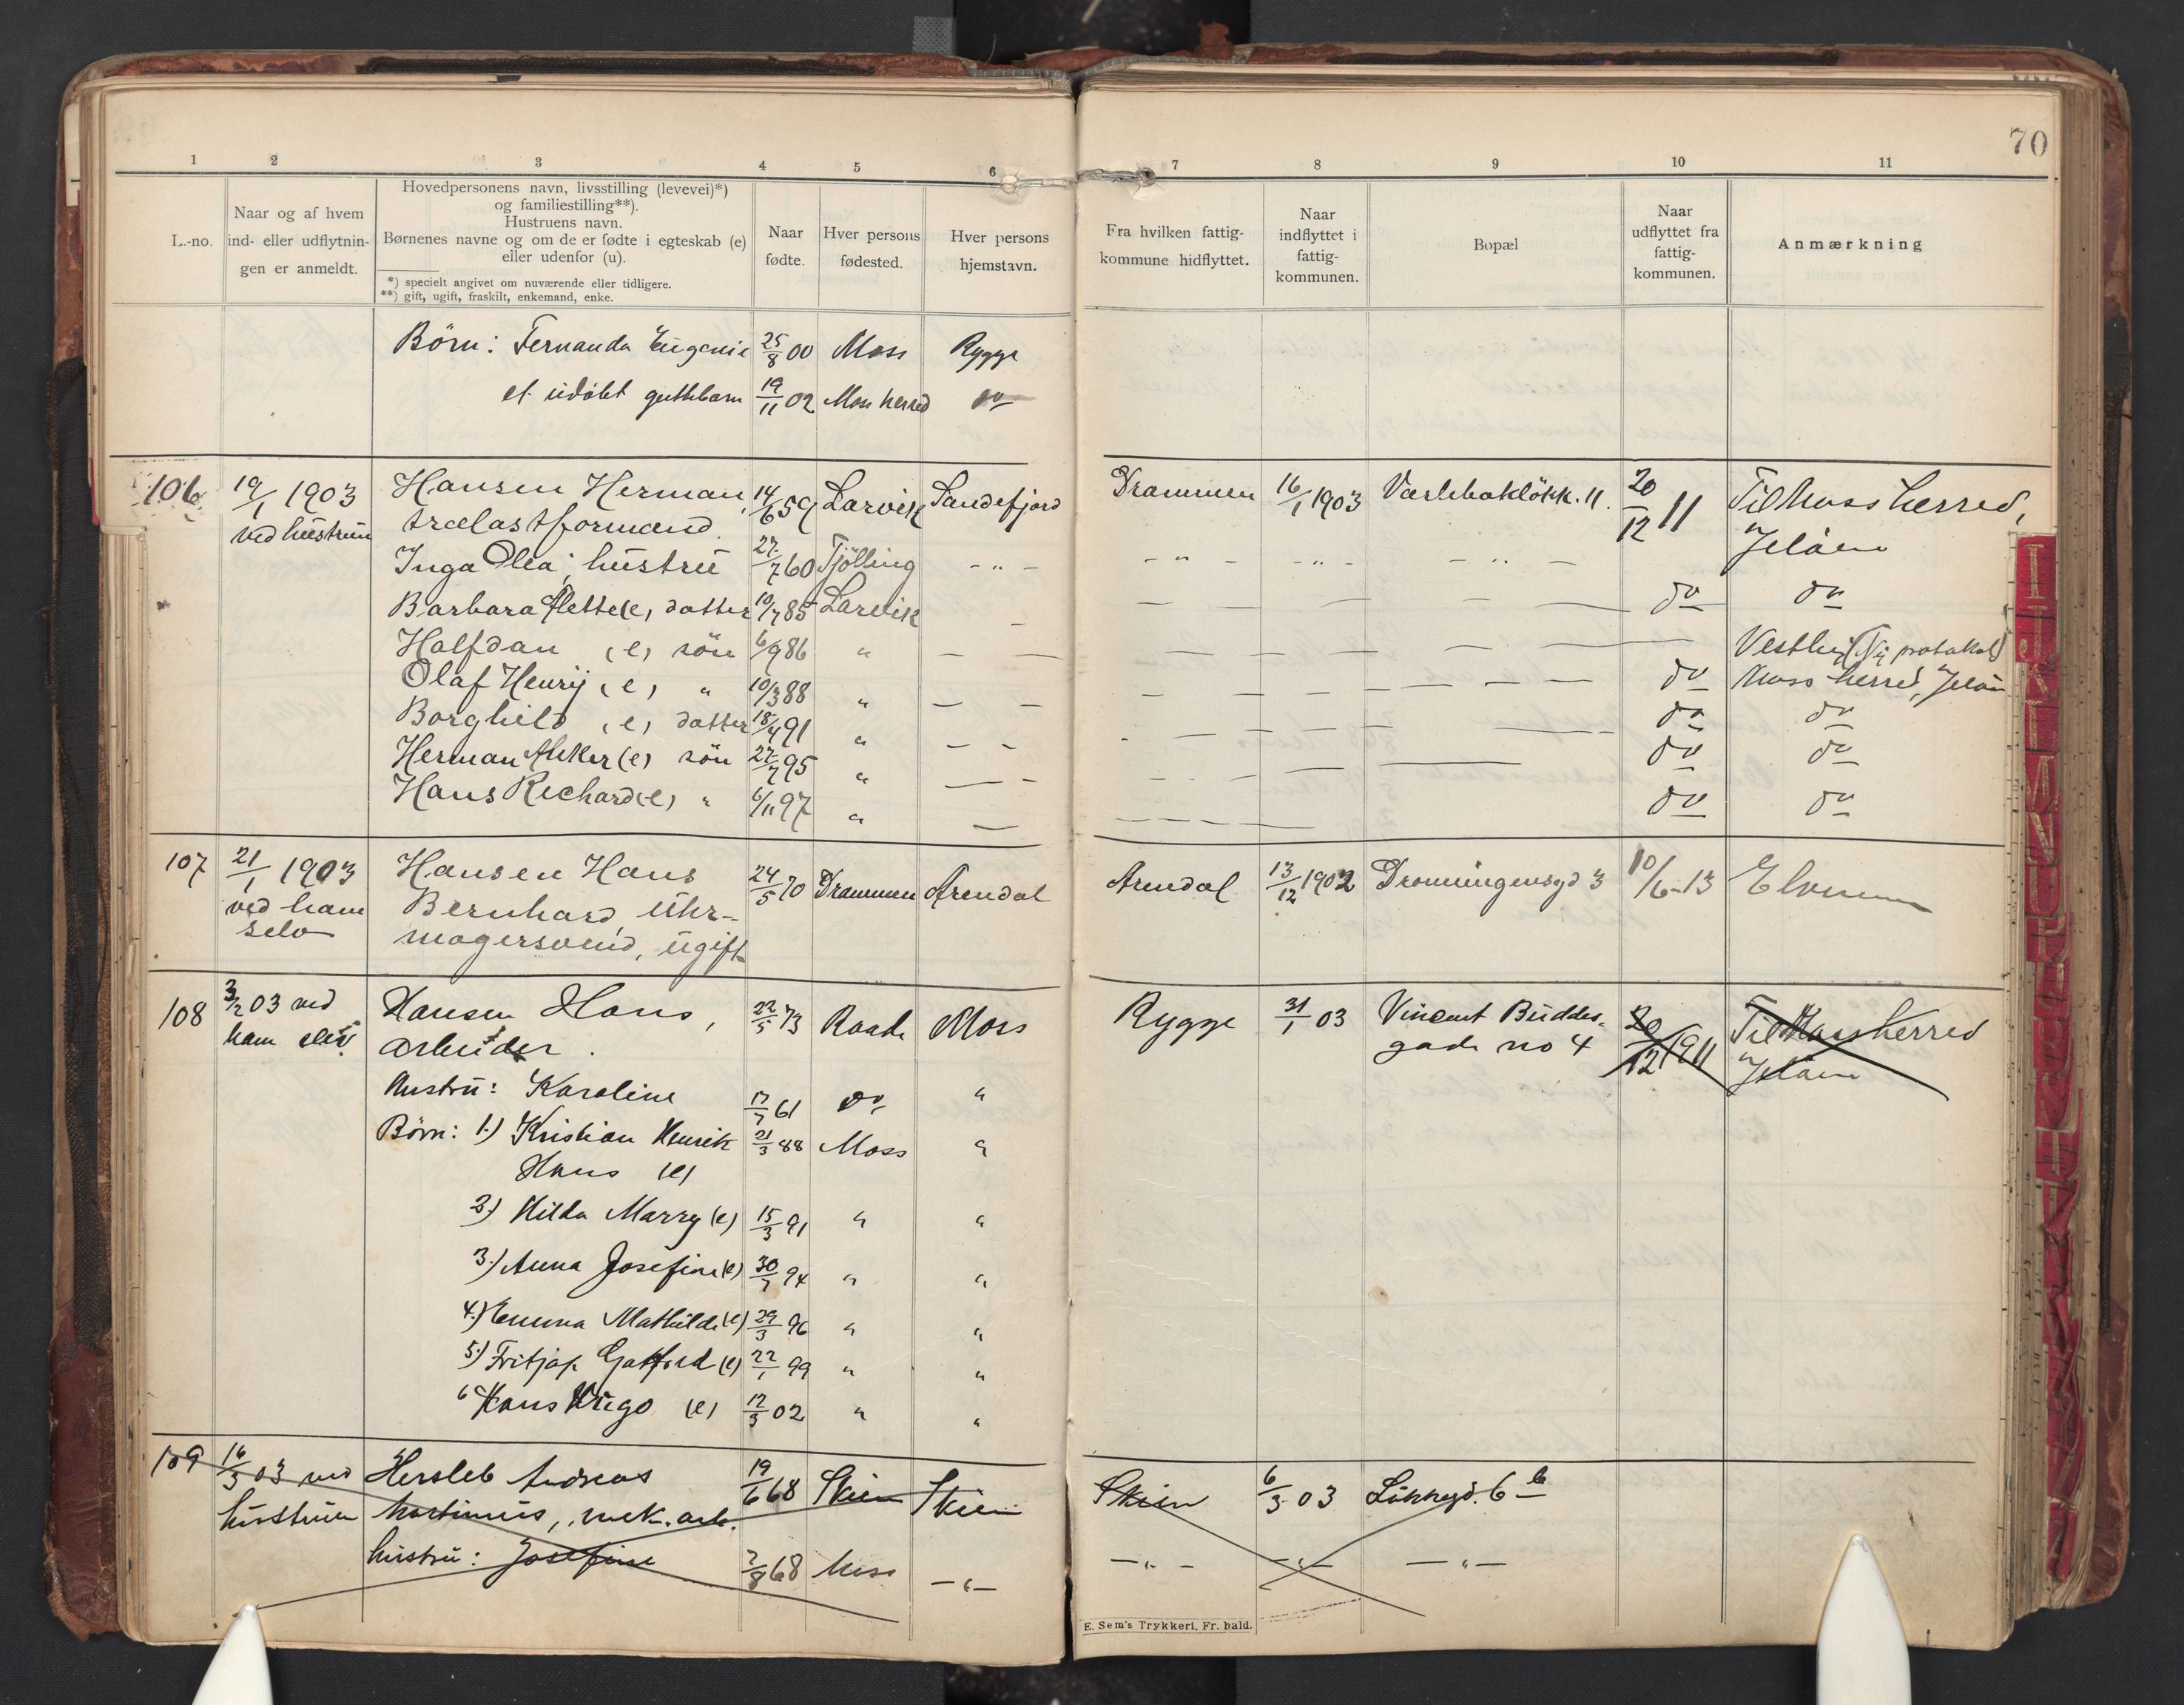 70
1 2 3 4 5 6 7 8 9 10 11
L.-no.
Naar og af hvem
ind- eller udflytnin-
gen er anmeldt.
Hovedpersonens navn, livsstilling (levevei)*)
og familiestilling**).
Hustruens navn.
Børnenes navne og om de er fødte i egteskab (e)
eller udenfor (u).
*) specielt angivet om nuværende eller tidligere.
**) gift, ugift, fraskilt, enkemand, enke.
Naar
fødte.
Hver persons
fødested.
Hver persons
hjemstavn.
Fra hvilken fattig-
kommune hidflyttet.
Naar
indflyttet i
fattig-
kommunen.
Bopæl
Naar
udflyttet fra
fattig-
kommunen.
Anmærkning
Børn: Fernanda Eugenie 25/8 00 Moss Rygge
et udøbt guttebarn 19/11 02 Moss herred do
106 19/1 1903 Hansen Herman, 14/6 59 Larvik Sandefjord Drammen 16/1 1903 Værlebakløkk. 11. 20/12 11 Til Moss herred,
ved hustruen trælastformand. Jeløen
Inga Olea, hustru 27/7 60 Tjølling - " - - " - - " - - " -
Barbara Alette (e) datter 10/7 85 Larvik do do
Halfdan (e) søn 6/9 86 " Vestby (Ny protokol)
Olaf Henry (e) " 10/3 88 " do Moss herred, Jeløen
Borghild (e) datter 18/4 91 " do do
Herman Anker (e) søn 27/7 95 " do do
Hans Richard (e) " 6/11 97 " do do
107 21/1 1903 Hansen Hans 24/5 70 Drammen Arendal Arendal 13/12 1902 Dronningensgd 3 10/6-13 Elverum
ved ham Bernhard, uhr-
selv magersvend, ugift
108 3/2 03 ved Hansen Hans, 22/5 73 Raade Moss Rygge 31/1 03 Vincent Buddes- 20/12 1911 Til Moss herred
ham selv. arbeider. gade no 4 Jeløen
Hustru: Karoline 17/7 61 do "
Børn: 1.) Kristian Henrik 21/3 88 Moss "
Hans (e)
2.) Hilda Marry (e) 15/3 91 " "
3.) Anna Josefine (e) 30/7 94 " "
4.) Emma Mathilde (e) 29/3 96 " "
5.) Fritjof Gotfred (e) 22/1 99 " "
6 Hans Hugo (e) 12/3 02 " "
109 16/3 03 ved Hersleb Andreas 19/6 68 Skien Skien Skien 6/3 03 Løkkegd. 6 b
hustruen Martinius, mek. arb.
hustru: Josefine 7/8 68 Moss - " - - " - - " - - " -
E. Sem's Trykkeri, Fr. hald.